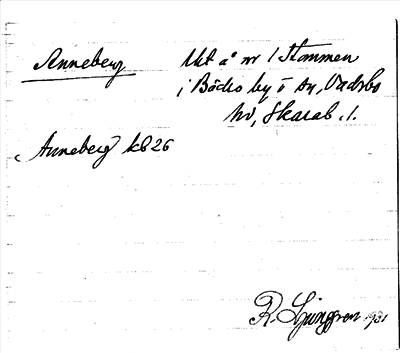 Anneberg
Utt å nr 1 Stommen
i Bäcks by i sn, Vadsbo
hd, Skarab. l.
Anneberg kb 26
R. Ljunggren 1931